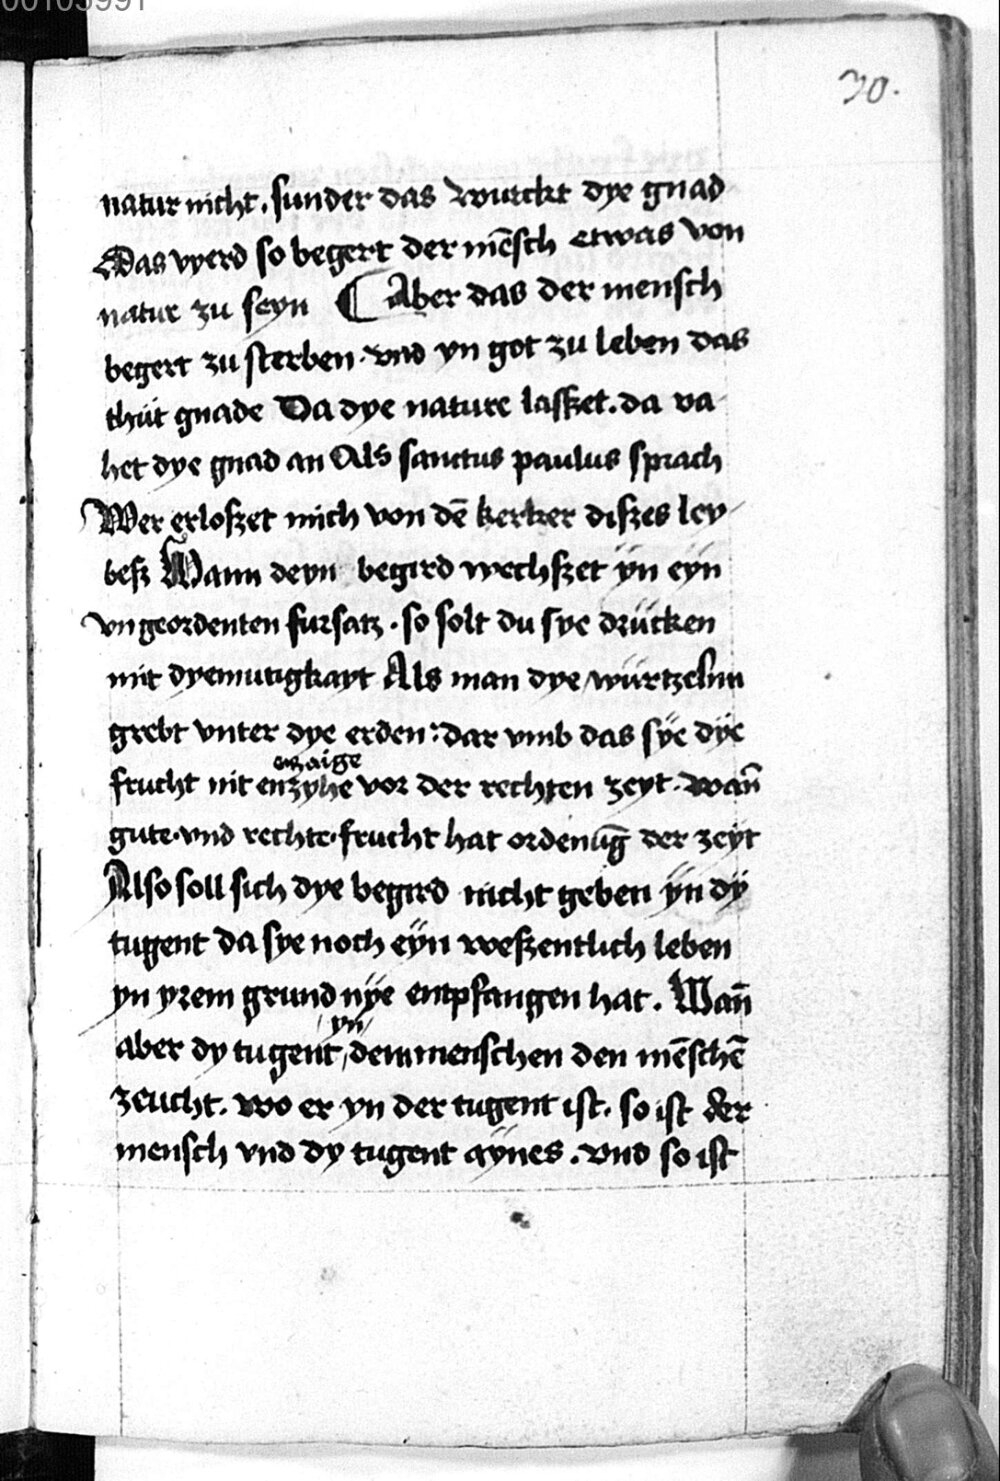 00105991
30.
natur nicht. sunder das wurckt dye gnad
Das vyerd so begert der mēsch etwas von
natur zu seyn ¶ Aber das der mensch
begert zu sterben. vnd yn got zu leben das
thüt gnade Da dye nature lasszet. da va
het dye gnad an Als sanctus paulus sprach
Wer erloszet mich von dē kerker diszes ley
besz Wann deyn begird wechszet ÿn eÿn
vngeordenten fursatz. so solt du sye drücken
mit dyemutigkayt Als man dye würtzelnn
grebt vnter dye erden: dar vmb das sÿe dÿe
enzaige
frucht nit enzyhe vor der rechten zeyt. wan̄
gute. vnd rechte. frucht hat ordenūg der zeÿt
Also soll sich dye begird nicht geben ÿn dÿ
tugent da sye noch eÿn weszentlich leben
yn yrem grund nÿe entpfangen hat. Wan̄
yn
aber dy tugent dem menschen den mēschē
zeucht. wo er yn der tugent ist. so ist der
mensch vnd dy tugent aÿnes. vnd so ist